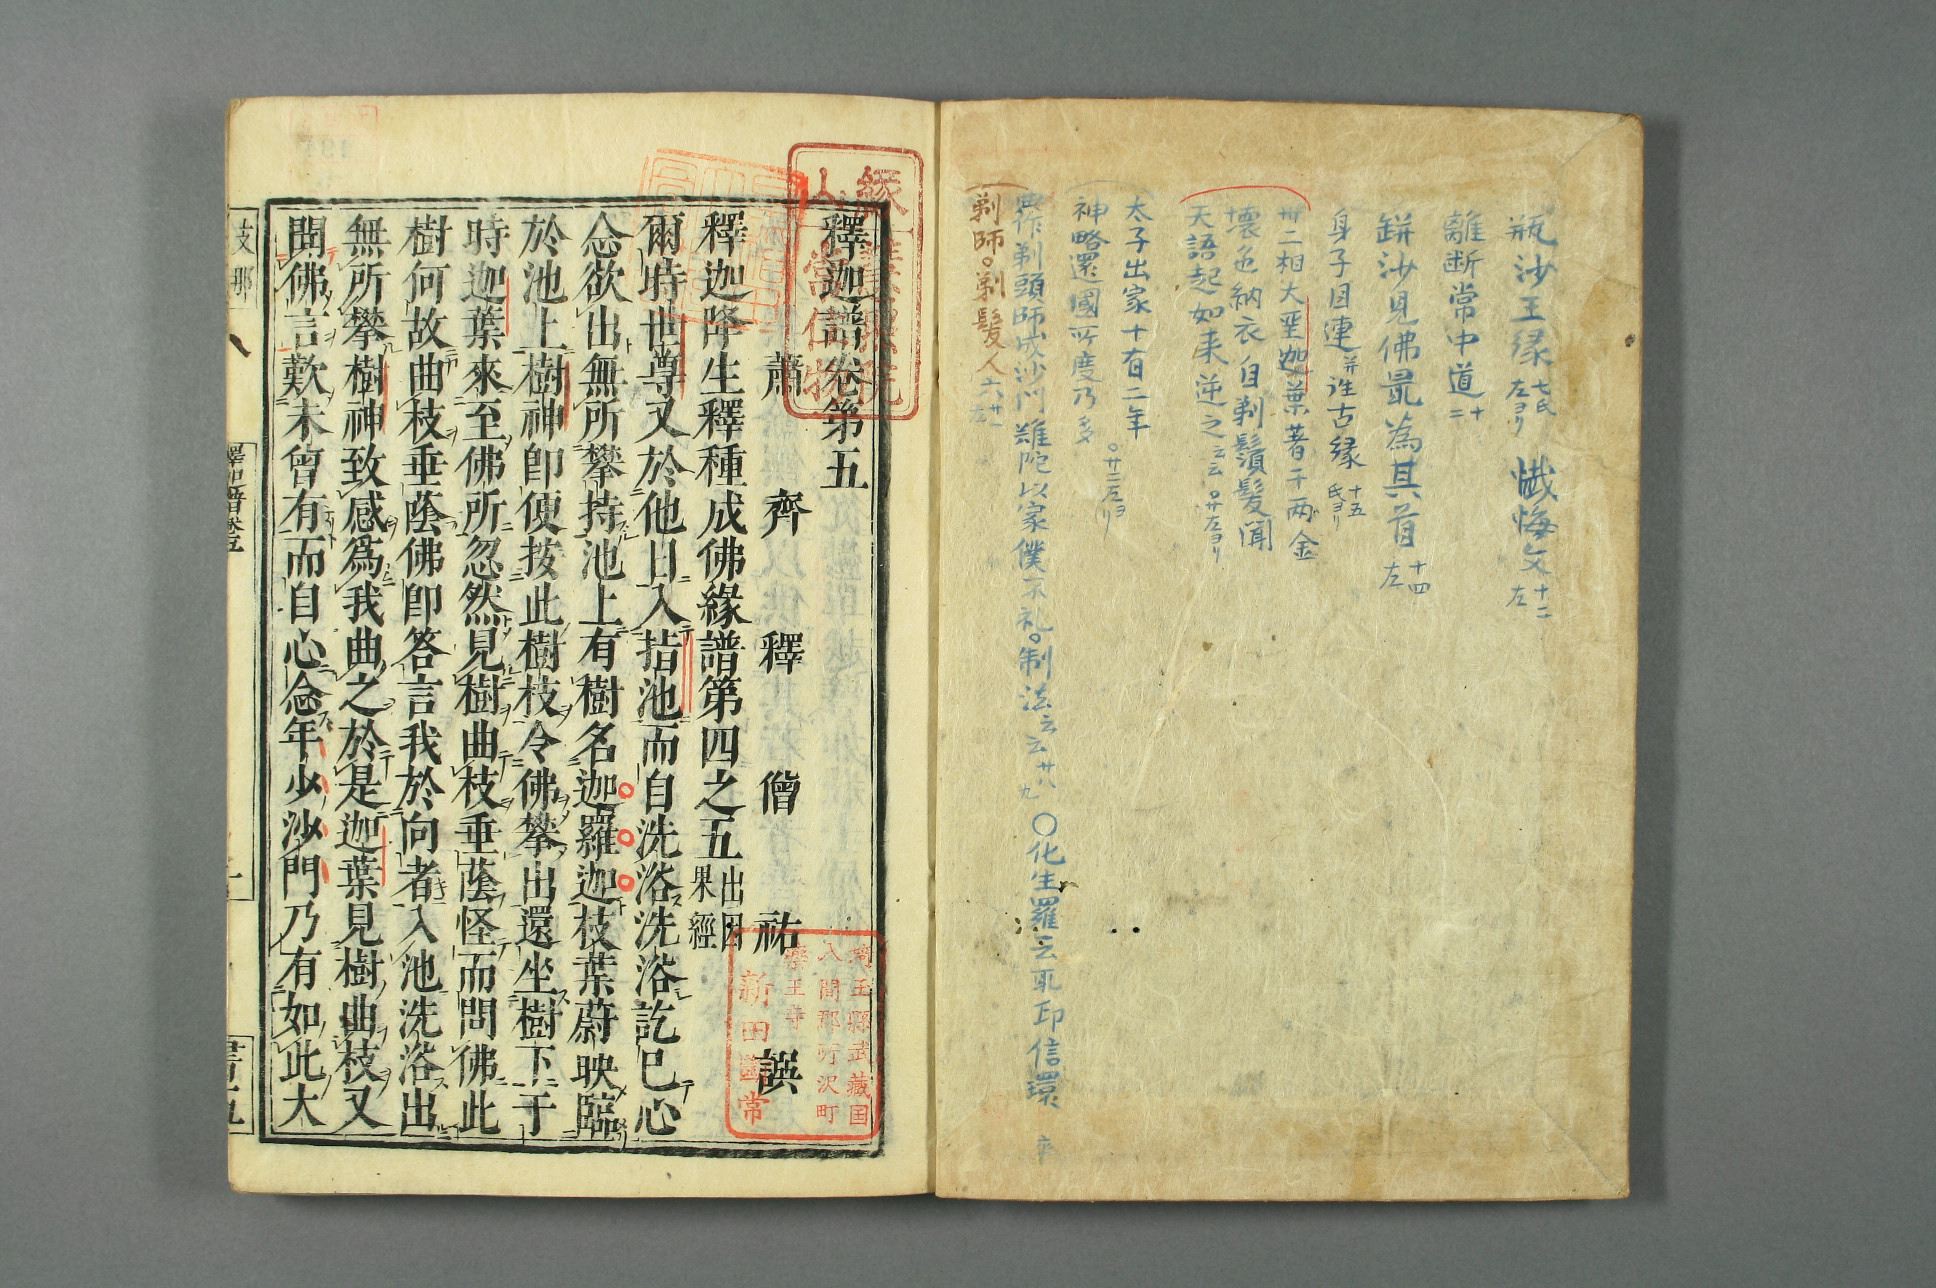 瓶沙王縁 七氏左ヨリ 懺悔文 十二左
離断常中道 十二
鉼沙見佛最為其首 十四左
身子目連并誰古縁 十五氏ヨリ
卅二相大聖迦葉著千両金
壊色納衣自剃鬚髪聞
天語起如来逆之云云 廿左ヨリ
太子出家十有二年
神略還國所度乃多 廿二左ヨリ
剃頭師出成沙門難陀以家僕不礼。制法云云廿八九 〇化生羅云取印信環
剃師。剃髪人
釋迦譜卷第五
蕭齊釋僧祐譔
釋迦降生釋種成佛緣譜第四之五 出因果經
爾時世尊又於他日入指池而自洗浴洗浴訖已心
念欲出無所攀持池上有樹名迦羅迦枝葉蔚映臨
於池上樹神卽便按此樹枝令佛攀出還坐樹下于
時迦葉來至佛所忽然見樹曲枝垂蔭怪而問佛此
樹何故曲枝垂蔭佛卽答言我於向者入池洗浴出
無所攀樹神致感爲我曲之於是迦葉見樹曲枝又
聞佛言歎未曾有而自心念年少沙門乃有如此大
支那
釋迦譜卷五
埼玉縣武藏国
入間郡所沢町
藥王寺
新田義常